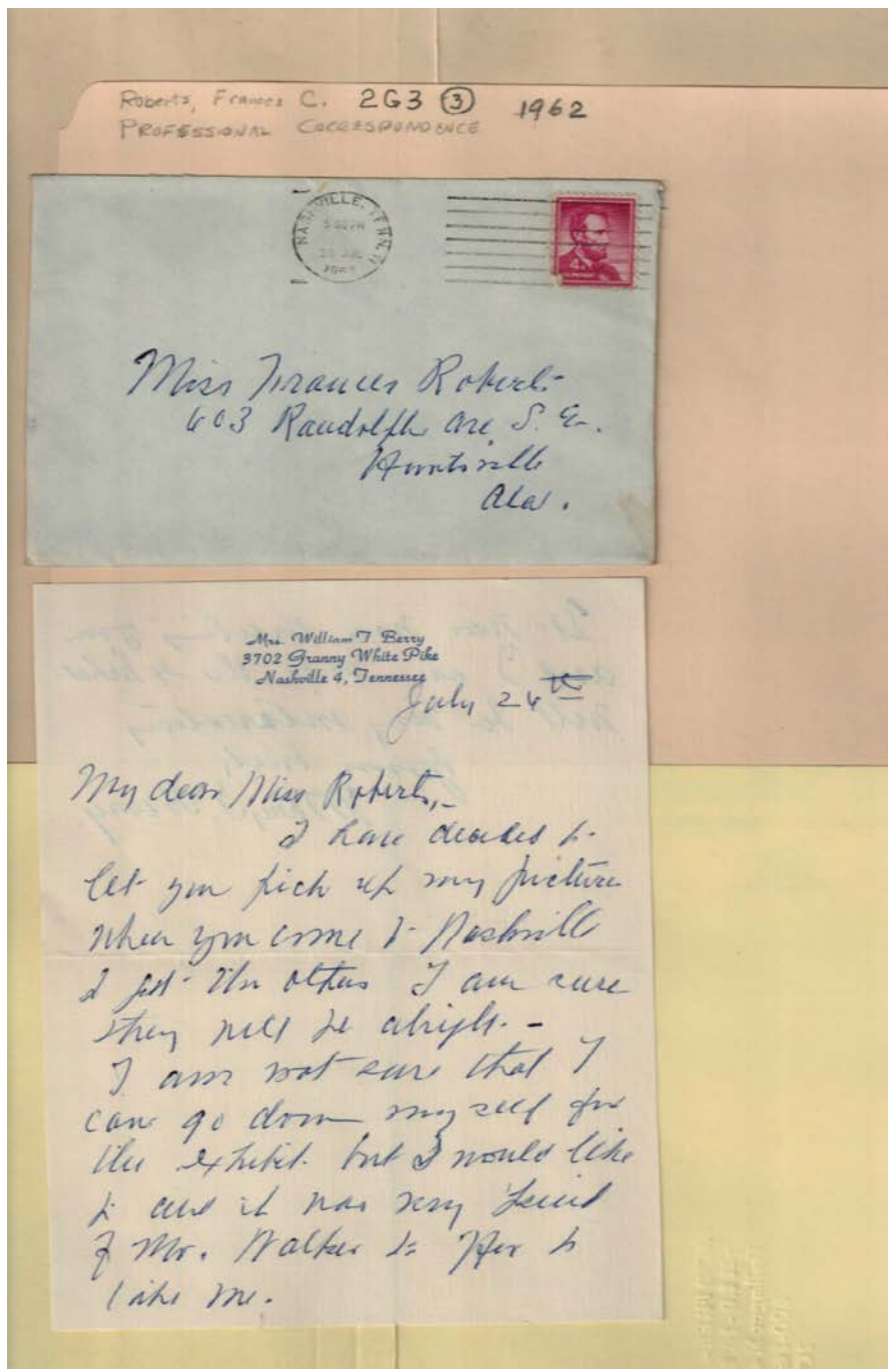 Roberts, Frances C. 2G3 ③ 1962
PROFESSIONAL CORRESPONDENCE
NASHVILLE, TENN.
PM
4¢
Miss Frances Roberts
603 Randolph Ave, S. E.
Huntsville
Ala.
Mrs. William T. Berry
3702 Granny White Pike
Nashville 4, Tennessee
July 26th
My dear Miss Roberts,-
I have decided to
let you pick up my picture
when you come to Nashville
& get the others I am sure
they will be alright. -
I am not sure that I
can go down myself for
the exhibit but I would like
to and it was very kind
of Mr. Walker to offer to
take me.